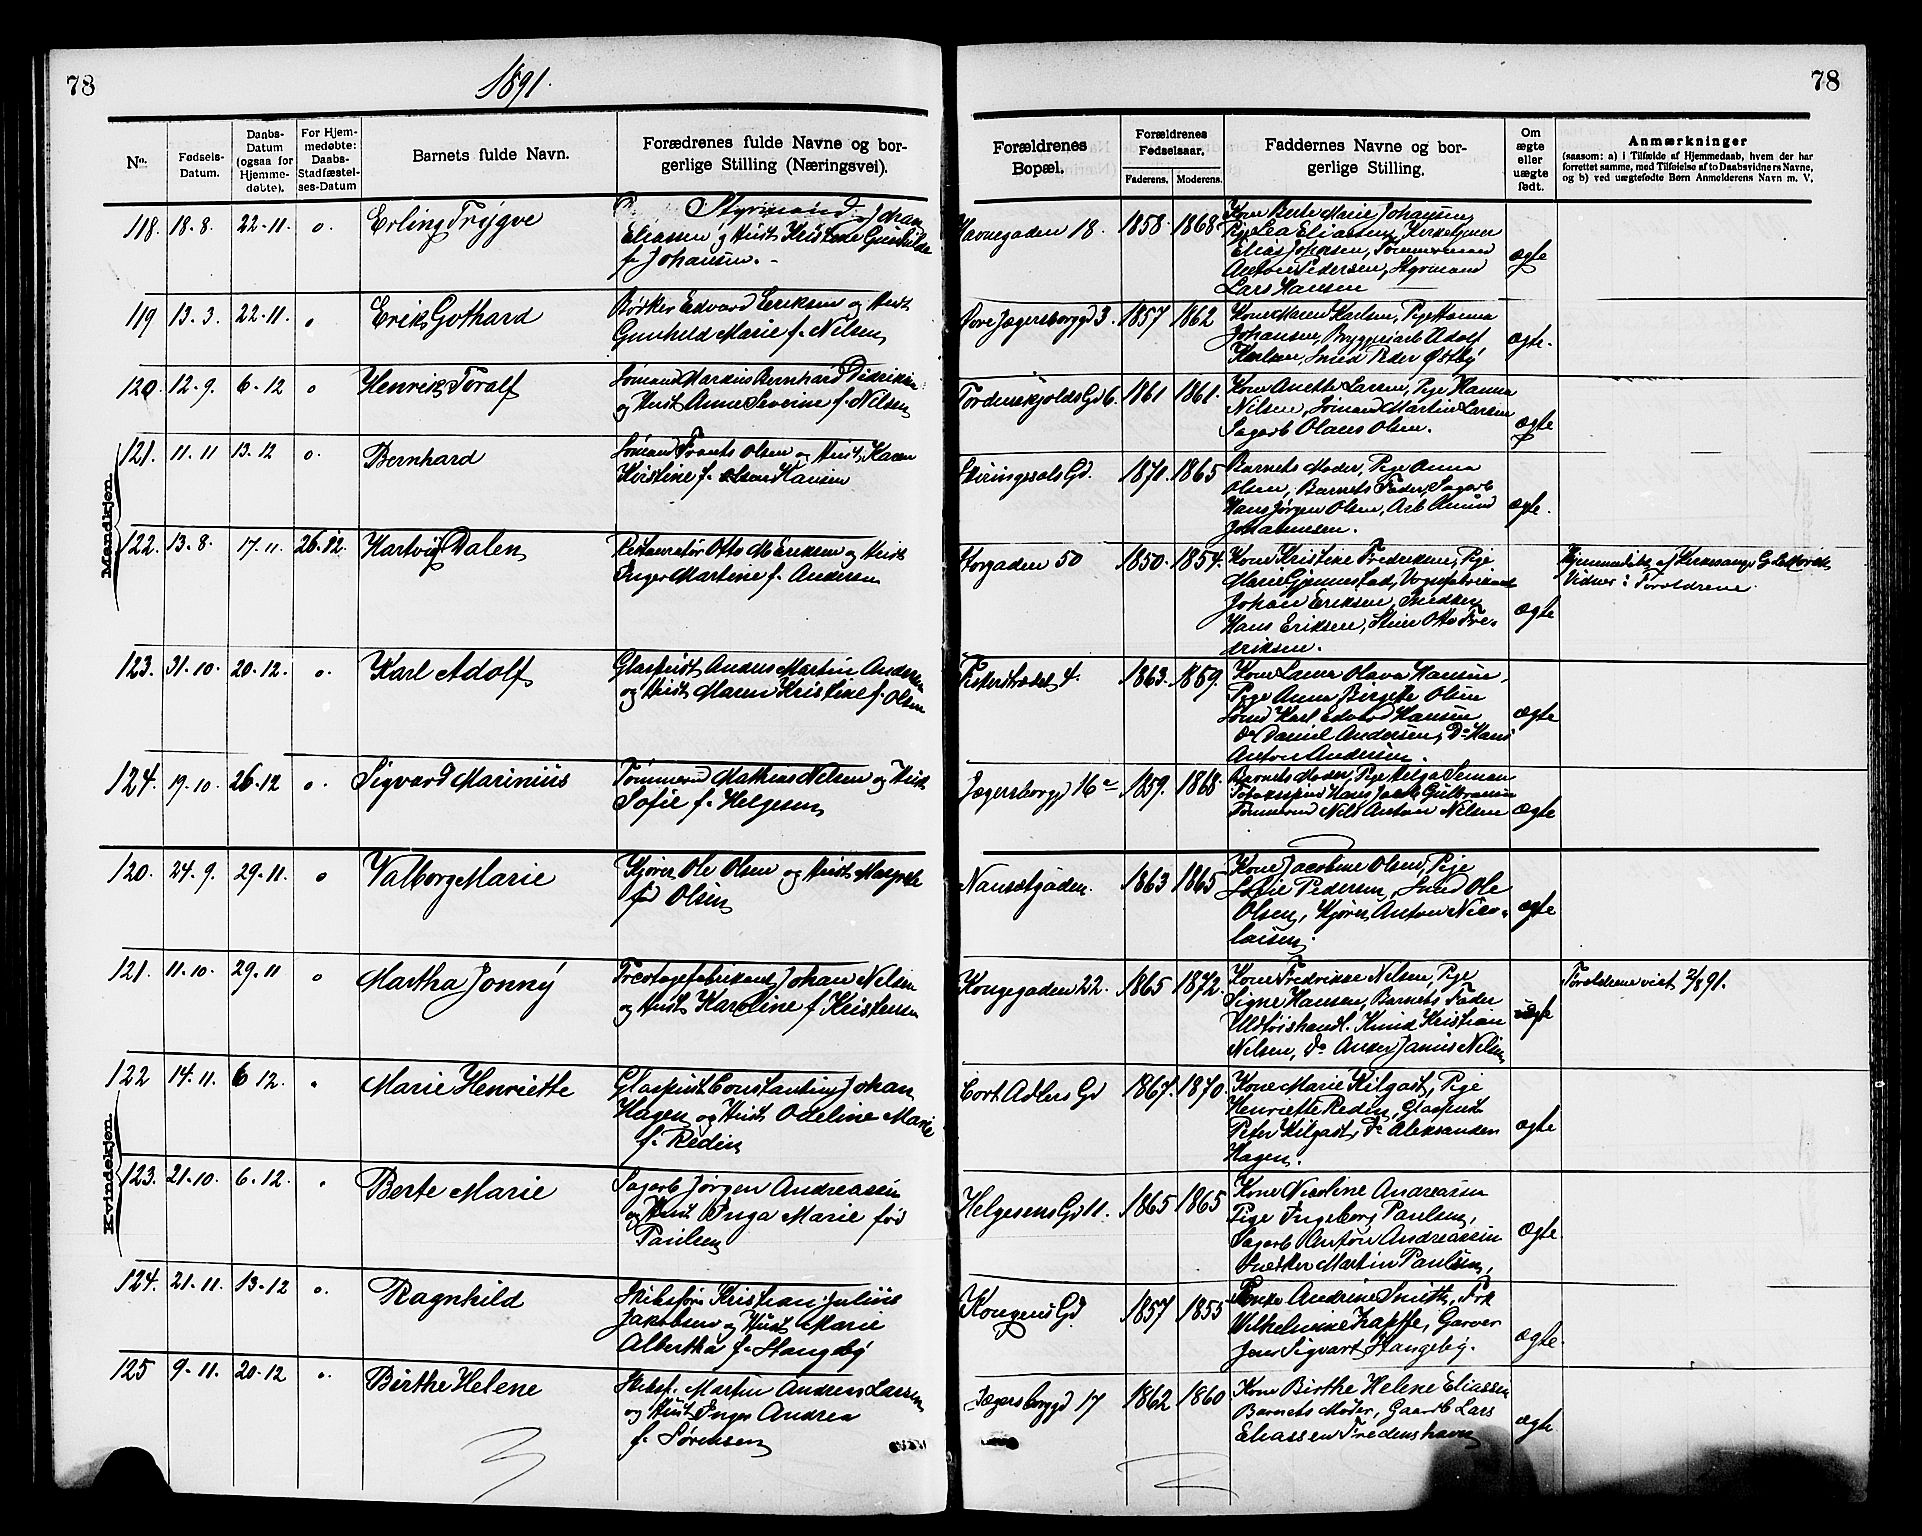 78
1891.
78
No.
Fødsels-
Datum.
Daabs-
Datum
(ogsaa for
Hjemme-
døbte).
For Hjem-
medøbte:
Daabs-
Stadfæstel-
ses-Datum
Barnets fulde Navn.
Forædrenes fulde Navne og bor-
gerlige Stilling (Næringsvei).
Forældrenes
Bopæl.
Forældrenes
Fødselsaar.
Faderens.
Moderens.
Faddernes Navne og bor-
gerlige Stilling.
Om
ægte
eller
uægte
født.
Anmærkninger
(saasom: a) i Tilfælde af Hjemmedaab, hvem der har
forrettet samme, med Tilføielse af to Daabsvidners Navne,
og b) ved uægtefødte Børn Anmelderens Navn m. V.
Mandkjøn
118. 18-8. 22-11. o. Erling Trygve
Styrmand Johan
Eliassen og Hust Kristine Gunhilde
f. Johansen.
Havnegaden 18. 1858 1868
Kone Berte Marie Johansen,
Pige Lea Eliassen, Kirketjener
Elias Johnsen, Tømmermand
Anton Pedersen, Styrmand
Lars Hansen
ægte
119 13.3. 22-11. o Erik Gothard
Bødker Edvard Eriksen og Hust
Gunhild Marie f. Nilsen
Hove Jægersborggd 3. 1857 1862
Kone Maren Karlsen, Pige Hanna
Johansen, Bryggeriarb Adolf
Karlsen, Smed Peder Østby
ægte.
120. 12-9. 6-12 o Henrik Toralf
Sømand Markus Bernhard Didriksen
og Hust Anne Severine f. Nilsen
Tordenskjolds Gd 6. 1861 1861.
Kone Anette Larsen, Pige Hanna
Nilsen, Sømand Martin Larsen
Sagarb Olaus Olsen.
ægte
121. 11-11 13.12 o. Bernhard
Sømand Frants Olsen og Hust Karen
Kirstine f. Hansen
Skiringssals Gd. 1870. 1865
Barnets Moder, Pige Anna
Olsen, Barnets Fader, Sagarb
Hans Jørgen Olsen, Arb Amund
Johannesen.
ægte.
122. 13-8. 17-11. 26.12. Hartvig Dalen
Restauratør Otto M Eriksen og Hust
Inger Martine f. Andersen
Storgaden 50 1850. 1854.
Kone Kristine Frederiksen, Pige
Marie Gjennestad, Vognfabrikant
Johan Eriksen, Snedker
Hans Eriksen, Otto Fre-
driksen.
ægte
Hjemmedøbt af Kirkesanger
Vidner: Forældrene
123. 31-10. 20-12. o. Karl Adolf
Glaspust Anders Martin Andersen
og Hust Maren Kristine f. Olsen
Fiskerstrædet 4. 1863. 1859.
Kone Laura Olava Hansen,
Pige Anna Birgette Olsen
Smed Karl Edvard Hansen
Do Daniel Andersen, Do Hans
Anton Andersen.
ægte
124. 19-10. 26-12 o. Sigvard Marinius
Tømmermd Mathias Nilsen og Hust
Sofie f. Helgesen
Jægersborggd 16a 1859. 1868.
Barnets Moder, Pige Helga
Tobakksspind Hans Jacob Gulbransen
Tømmermd Nils Anton Nilsen
ægte
Kvindekjøn
120. 24-9. 29-11. o Valborg Marie
Kjører Ole Olsen og Hust Margrethe
fød Olsen
Nansetgaden. 1863 1865
Kone Jacobine Olsen, Pige
Sofie Pedersen, Smed Ole
Olsen, Kjører Anton Nico-
laisen.
ægte
121. 11-10. 29-11 o Martha Jonny
Johan Nilsen
og Hust Karoline f Kristensen
Kongegaden 22. 1865 1872.
Kone Fredrikke Nilsen, Pige
Signe Hansen, Barnets Fader
Uldtøishandl. Knud Kristian
Nilsen, Do Anders Janus Nilsen
ægte
Forældrene viet 2/8 91.
122 14-11. 6 12. Marie Henriette
Glaspust Constantin Johan
Hagen og Hust Odeline Marie
f. Redin
Cort Adlers Gd 1867. 1870.
Kone Marie Kilgast, Pige
Henriette Redin, Glaspust
Peter Kilgast, Do Aleksander
Hagen.
ægte
123. 21-10. 6-12. Berte Marie
Sagarb Jørgen Andreassen
og Hust Inga Marie fød
Paulsen
Helgesens Gd 11. 1865 1865
Kone Nicoline Andreassen
Pige Ingeborg Paulsen,
Sagarb Anton Andreassen
Snedker Martin Paulsen,
ægte
124. 21-11. 13-12 o. Ragnhild
Skibsfører Kristian Julius
Jakobsen og Hust Marie
Albertha f. Stangeby
Kongens Gd 1857 1855
Enke Andrine Smith, Frk
Vilhelmine Zapffe, Garver
Jens Sigvart Stangeby.
ægte.
125 9-11. 20-12 o. Birthe Helene
Skibsf. Martin Andreas Larsen
og Hust Inger Andrea
f. Sørensen
Jægersborggd 17 1862 1860
Kone Birthe Helene Eliassen
Barnets Moder, Gaardb Lars
Eliassen Fredenshavn
ægte